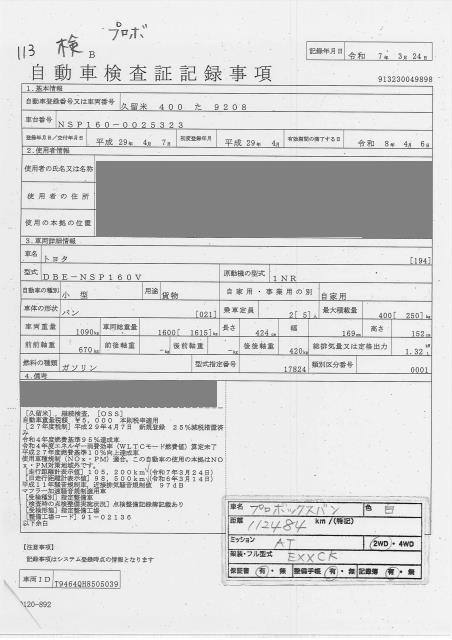 プロボ
113 検 B
記録年月日 令和 7年 3月 24日
自動車検査証記録事項
913230049898
1.基本情報
自動車登録番号又は車両番号 久留米 400 た 9208
車台番号 NSP160-0025323
登録年月日/交付年月日 平成 29年 4月 7日 初度登録年月 平成 29年 4月 有効期間の満了する日 令和 8年 4月 6日
2.使用者情報
使用者の氏名又は名称
使用者の住所
使用の本拠の位置
3.車両詳細情報
車名 トヨタ [194]
型式 DBE-NSP160V 原動機の型式 1NR
自動車の種別 小型 用途 貨物 自家用・事業用の別 自家用
車体の形状 バン [021] 乗車定員 2[ 5]人 最大積載量 400[ 250]kg
車両重量 1090kg 車両総重量 1600[ 1615]kg 長さ 424cm 幅 169cm 高さ 152cm
前前軸重 670kg 前後軸重 -kg 後前軸重 -kg 後後軸重 420kg 総排気量又は定格出力 1.32
燃料の種類 ガソリン 型式指定番号 17824 類別区分番号 0001
4.備考
[久留米],継続検査,[OSS]
自動車重量税額 ¥5,000 本則税率適用
[27年度税制]平成29年4月7日 新規登録 25%減税措置済
み
令和4年度燃費基準95%達成車
令和4年度エネルギー消費効率(WLTCモード燃費値)算定未了
平成27年度燃費基準10%向上達成車
使用車種規制(NOx・PM)適合、この自動車の使用の本拠はNO
x・PM対策地域外です。
[走行距離計表示値]105,200km(令和7年3月24日)
[旧走行距離計表示値]98,500km(令和6年3月14日)
平成11年騒音規制車、近接排気騒音規制値 97dB
マフラー加速騒音規制適用車
[受検種別]指定整備車
[検査時の点検整備実施状況]点検整備記録簿記載あり
[受検形態]指定整備工場
[整備工場コード]91-02136
以下余白
車名 プロボックスバン 色 白
距離 112484 km/(特記)
ミッション AT 2WD・4WD
架装・フル型式 EXXCK
保証書 有・無 整備手帳 有・無 記録簿 有・無
[注意事項]
記載事項はシステム登録時点の情報となります
車両ID T9464QH8505039
0120-892